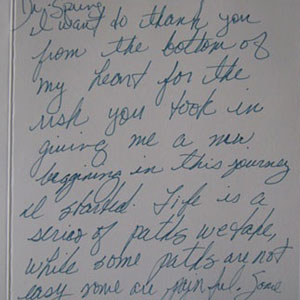 Dr. Spring
I want to thank you
from the bottom of
my heart for the
risk you took in
giving me a new
beggining in this journey
I started. Life is a
series of paths we take,
while some paths are not
easy some are painful. Some